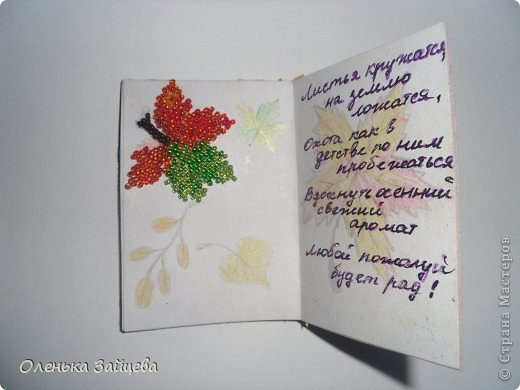 Листья кружатся,
на землю
ложатся,
Охота как в
детстве по ним
пробежаться
Вдохнуть осенний
свежий
аромат
Любой пожалуй
будет рад!
Оленька Зайцева
© Страна Мастеров